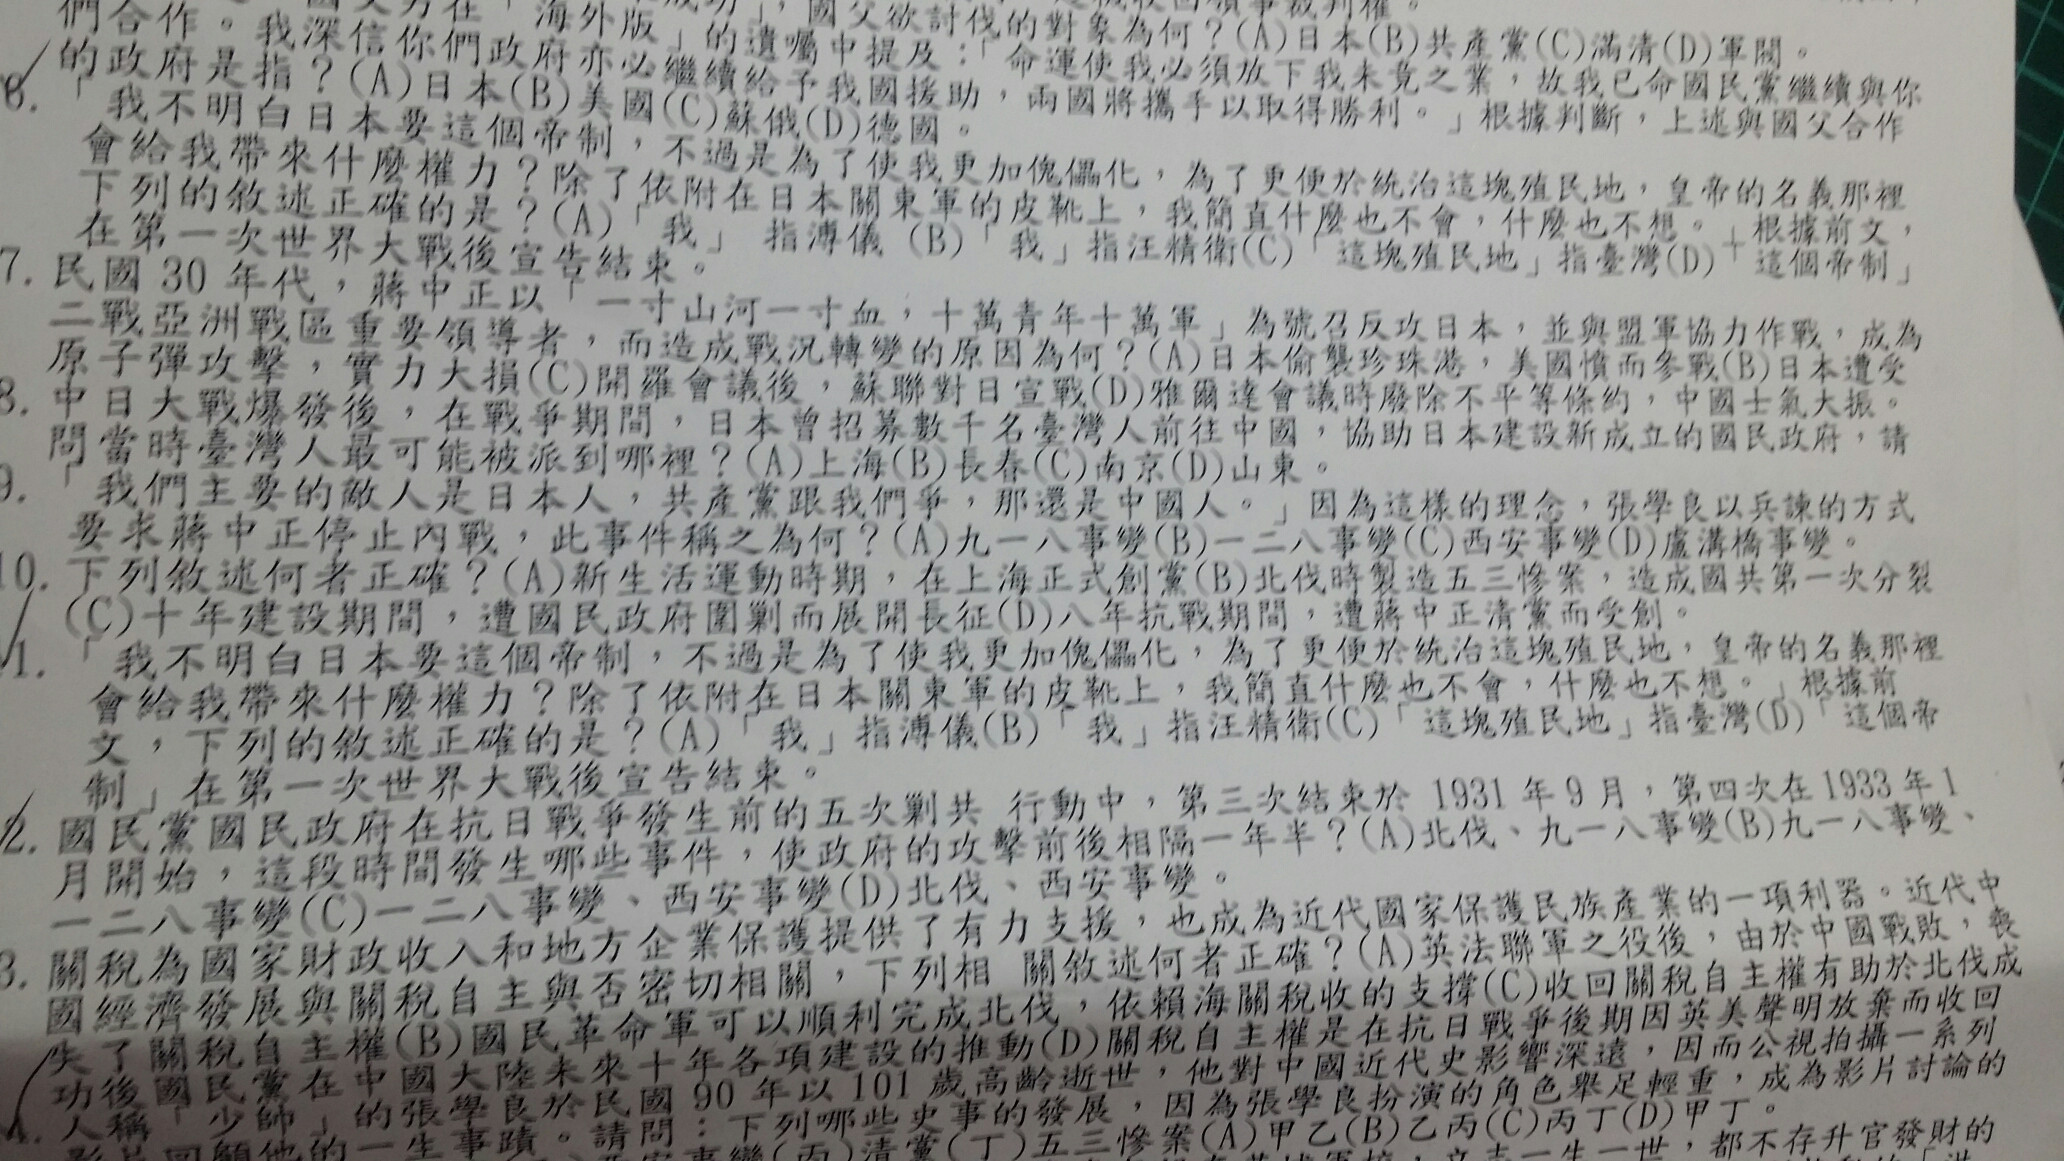 國父欲討伐的對象為何？(A)日本(B)共產黨(C)滿清(D)軍閥。
「海外版」的遺囑中提及：「命運使我必須放下我未竟之業，故我已命國民黨繼續與你
們合作。我深信你們政府亦必繼續給予我國援助，兩國將攜手以取得勝利。」根據判斷，上述與國父合作
的政府是指？(A)日本(B)美國(C)蘇俄(D)德國。
6.「我不明白日本要這個帝制，不過是為了使我更加傀儡化，為了更便於統治這塊殖民地，皇帝的名義那裡
會給我帶來什麼權力？除了依附在日本關東軍的皮靴上，我簡直什麼也不會，什麼也不想。」根據前文，
下列的敘述正確的是？(A)「我」 指溥儀 (B)「我」指汪精衛(C)「這塊殖民地」指臺灣(D)「這個帝制」
在第一次世界大戰後宣告結束。
7. 民國 30 年代，蔣中正以「一寸山河一寸血，十萬青年十萬軍」為號召反攻日本，並與盟軍協力作戰，成為
二戰亞洲戰區重要領導者，而造成戰況轉變的原因為何？(A)日本偷襲珍珠港，美國憤而參戰(B)日本遭受
原子彈攻擊，實力大損(C)開羅會議後，蘇聯對日宣戰(D)雅爾達會議時廢除不平等條約，中國士氣大振。
8. 中日大戰爆發後，在戰爭期間，日本曾招募數千名臺灣人前往中國，協助日本建設新成立的國民政府，請
問當時臺灣人最可能被派到哪裡？(A)上海(B)長春(C)南京(D)山東。
9.「我們主要的敵人是日本人，共產黨跟我們爭，那還是中國人。」因為這樣的理念，張學良以兵諫的方式
要求蔣中正停止內戰，此事件稱之為何？(A)九一八事變(B)一二八事變(C)西安事變(D)盧溝橋事變。
10. 下列敘述何者正確？(A)新生活運動時期，在上海正式創黨(B)北伐時製造五三慘案，造成國共第一次分裂
(C)十年建設期間，遭國民政府圍剿而展開長征(D)八年抗戰期間，遭蔣中正清黨而受創。
1.「我不明白日本要這個帝制，不過是為了使我更加傀儡化，為了更便於統治這塊殖民地，皇帝的名義那裡
會給我帶來什麼權力？除了依附在日本關東軍的皮靴上，我簡直什麼也不會，什麼也不想。」根據前
文，下列的敘述正確的是？(A)「我」指溥儀(B)「我」指汪精衛(C)「這塊殖民地」指臺灣(D)「這個帝
制」在第一次世界大戰後宣告結束。
2. 國民黨國民政府在抗日戰爭發生前的五次剿共 行動中，第三次結束於 1931 年 9 月，第四次在 1933 年 1
月開始，這段時間發生哪些事件，使政府的攻擊前後相隔一年半？(A)北伐、九一八事變(B)九一八事變、
一二八事變(C)一二八事變、西安事變(D)北伐、西安事變。
3. 關稅為國家財政收入和地方企業保護提供了有力支援，也成為近代國家保護民族產業的一項利器。近代中
國經濟發展與關稅自主與否密切相關，下列相 關敘述何者正確？(A)英法聯軍之役後，由於中國戰敗，喪
失了關稅自主權(B)國民革命軍可以順利完成北伐，依賴海關稅收的支撐(C)收回關稅自主權有助於北伐成
功後國民黨在中國大陸未來十年各項建設的推動(D)關稅自主權是在抗日戰爭後期因英美聲明放棄而收回
4. 人稱「少帥」的張學良於民國 90 年以 101 歲高齡逝世，他對中國近代史影響深遠，因而公視拍攝一系列
影片回顧他的一生事蹟。請問：下列哪些史事的發展，因為張學良扮演的角色舉足輕重，成為影片討論的
(丙)清黨(丁)五三慘案(A)甲乙(B)乙丙(C)丙丁(D)甲丁。
立志一生一世，都不存升官發財的